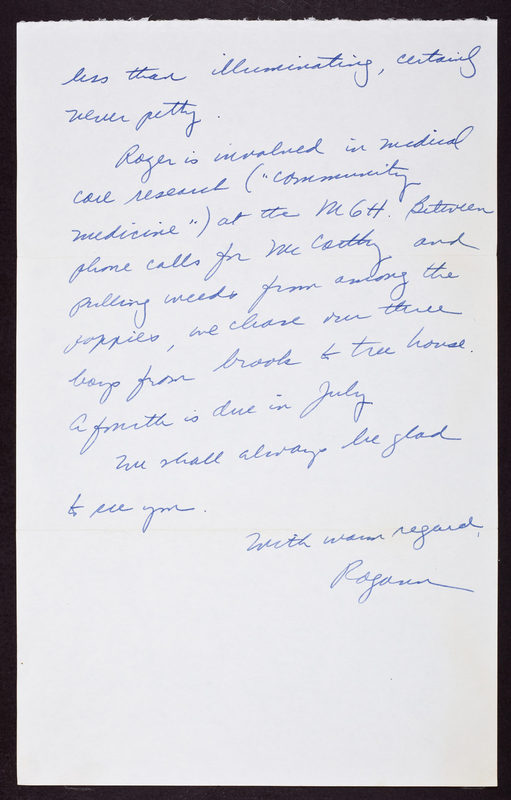 less than illuminating, certainly
never petty.
Roger is involved in medical
care research ("community
medicine") at the MGH. Between
phone calls for McCarthy and
pulling weeds from among the
poppies, we chase our three
boys from brook to tree house.
A fourth is due in July
We shall always be glad
to see you.
With warm regard,
Rogann